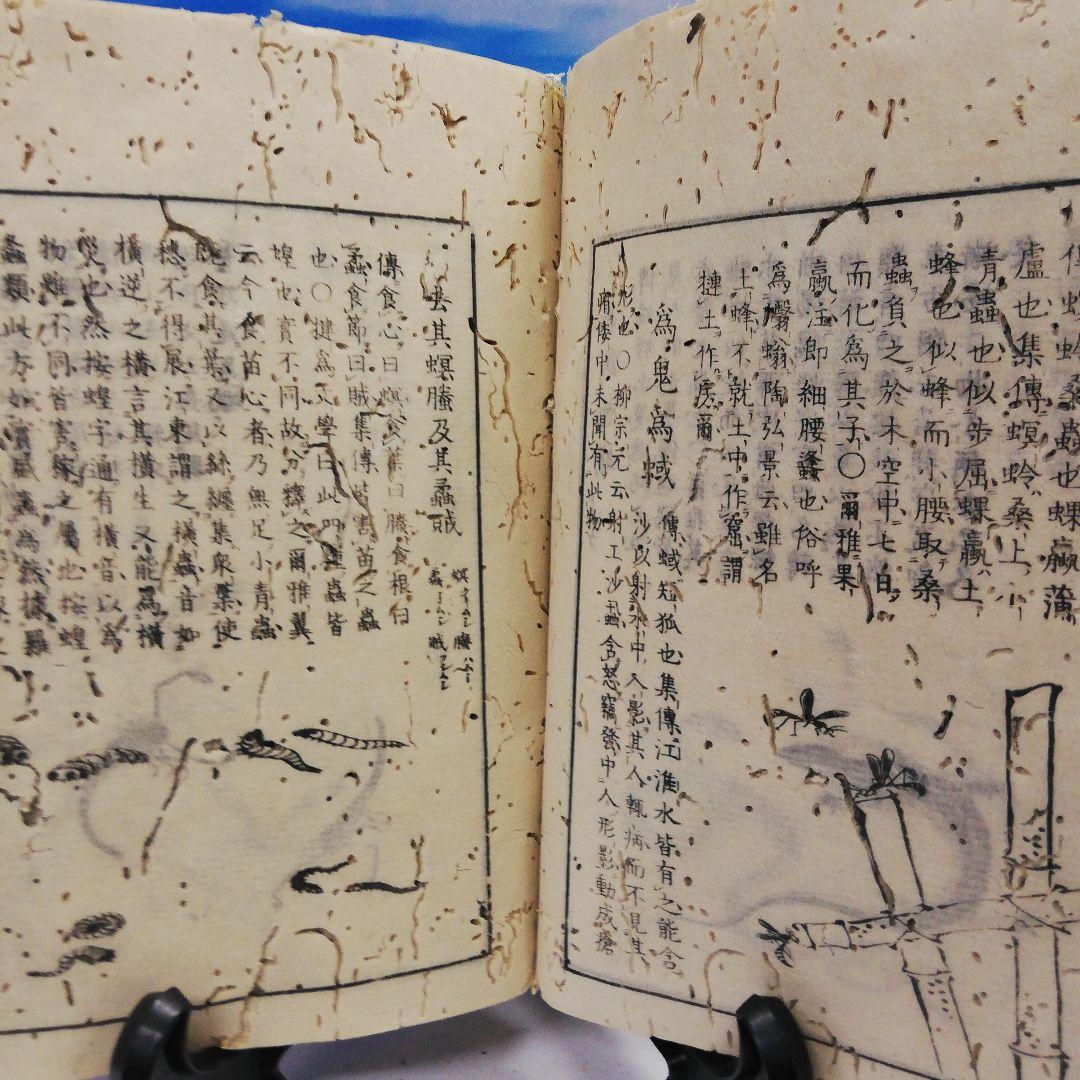 盧也集傳螟蛉桑上小
青蟲也似步屈蜾蠃土
蜂也似蜂而小腰取桑
蟲負之於木空中七日
而化爲其子〇爾雅果
蠃注即細腰蠭也俗呼
爲蠮螉陶弘景云雖名
土蜂不就土中作窟謂
摙土作房爾
爲鬼爲蜮
傳蜮短狐也集傳江淮水皆有之能含
沙以射水中人影其人輒病而不見其
形也〇柳宗元云射工沙虱含怒竊發中人形影動成瘡
痏倭中未聞有此物
去其螟螣及其蟊賊
傳食心曰螟食葉曰螣食根曰
蟊食節曰賊集傳皆害苗之蟲
也〇犍爲文學曰此四種蟲皆
蝗也實不同故分釋之爾雅翼
云今食苗心者乃無足小青蟲
既食其葉又以絲纏集衆葉使
穗不得展江東謂之橫蟲音如
橫逆之橫言其橫生又能爲橫
災也然按蝗字通有橫音以爲
物雖不同皆害稼之屬也按蝗